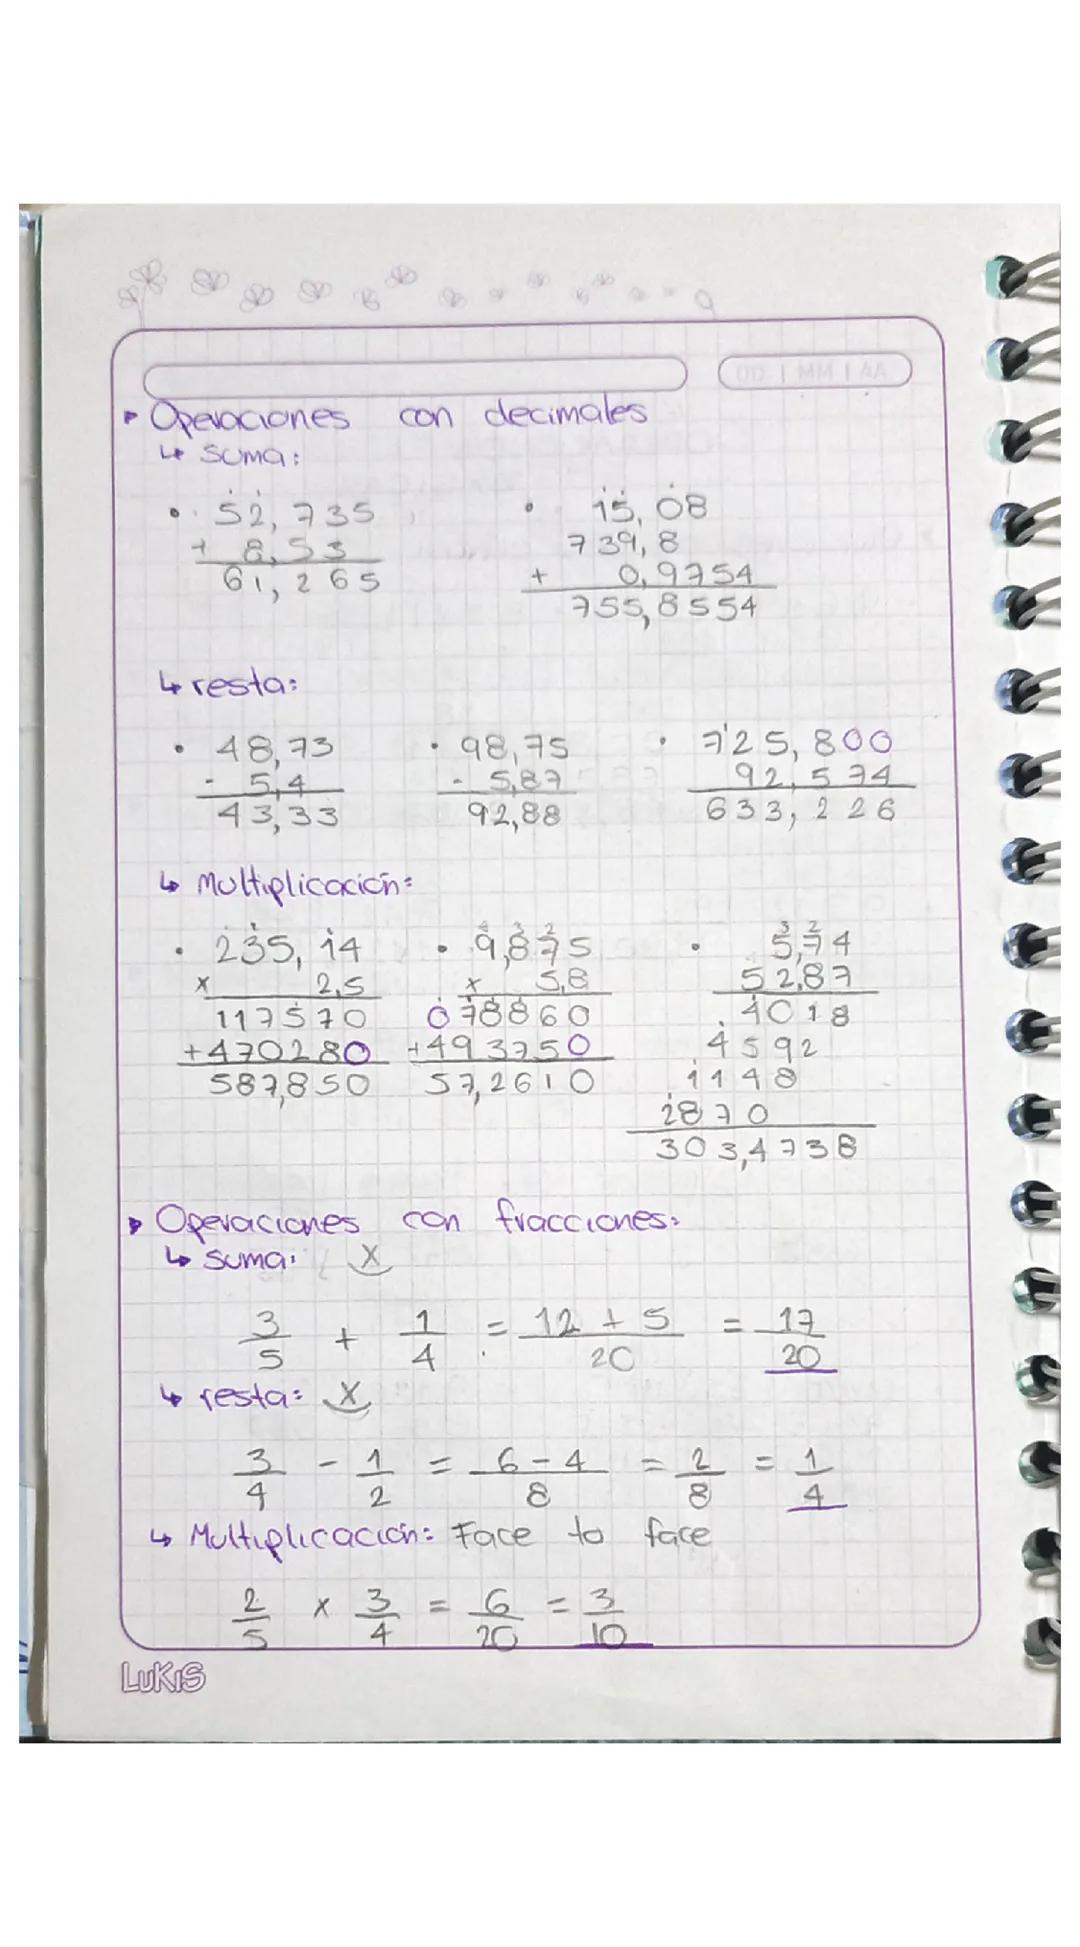 DD | MM | AA
Operaciones con decimales
↳ suma:
• 52,735 • 15,08
+ 8,53 739,8
61,265 + 0,9754
755,8554
↳ resta:
• 48,73 • 98,75 • 725,800
- 5,4 - 5,87 92,574
43,33 92,88 633,226
↳ Multiplicación:
• 235,14 • 9,875 • 5,74
x 2,5 x 5,8 52,87
117570 078860 4018
+470280 +493750 4592
587,850 57,2610 1148
2870
303,4738
Operaciones con fracciones:
↳ suma: x
3/5 + 1/4 = 12 + 5/20 = 17/20
↳ resta: x
3/4 - 1/2 = 6 - 4/8 = 2/8 = 1/4
↳ Multiplicación: Face to face
2/5 x 3/4 = 6/20 = 3/10
LUKIS